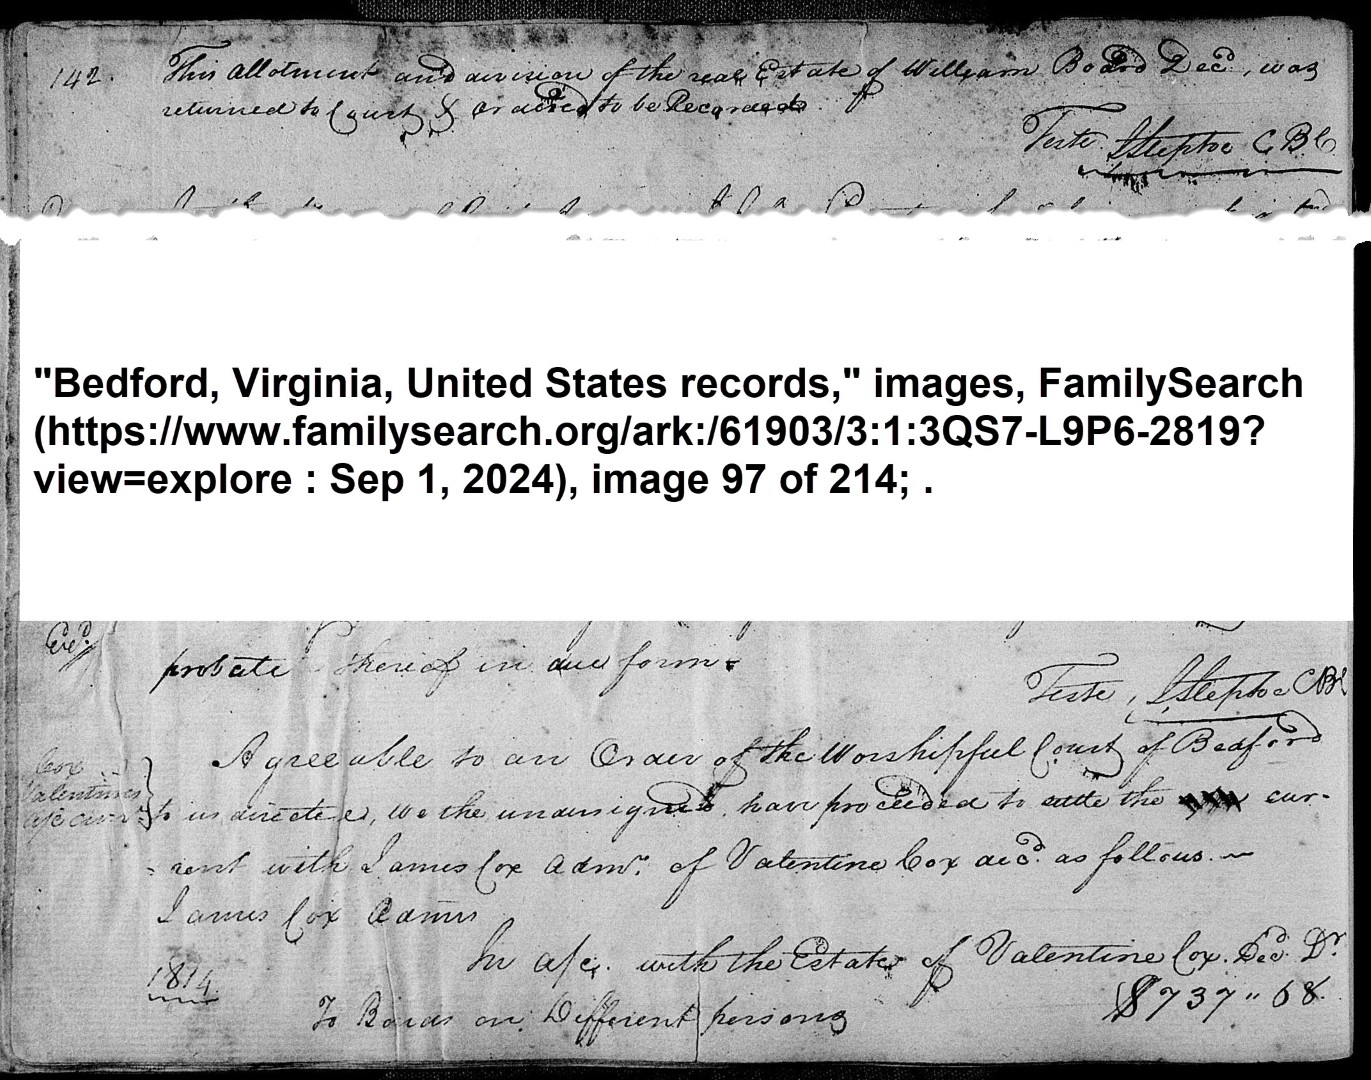 142. This allotment and division of the real Estate of William Board Decd, was
returned to Court & ordered to be Recorded.
Teste JSteptoe CBC
"Bedford, Virginia, United States records," images, FamilySearch
(https://www.familysearch.org/ark:/61903/3:1:3QS7-L9P6-2819?
view=explore : Sep 1, 2024), image 97 of 214; .
probate thereof in due form.
Teste, JSteptoe CBC
Agreeable to an Order of the Worshipful Court of Bedford
Cox
Valentines
a/c curt
to us directed, we the undersigned, have proceeded to settle the cur-
rent with James Cox Admr. of Valentine Cox decd. as follows.
James Cox Admr
In a/c. with the Estate of Valentine Cox. Decd. Dr.
1814
To Bonds on Different persons $737 " 68.